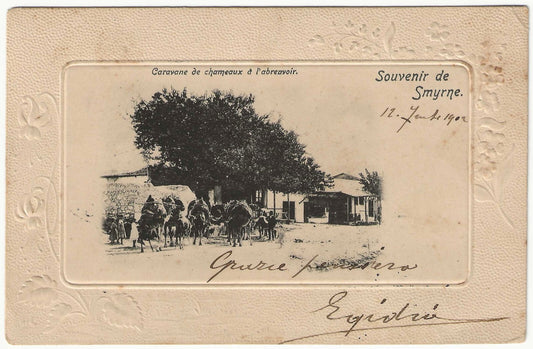 Caravane de chameaux à l'abreuvoir.
Souvenir de
Smyrne.
12 1902
Grazie pensiero
Egidio